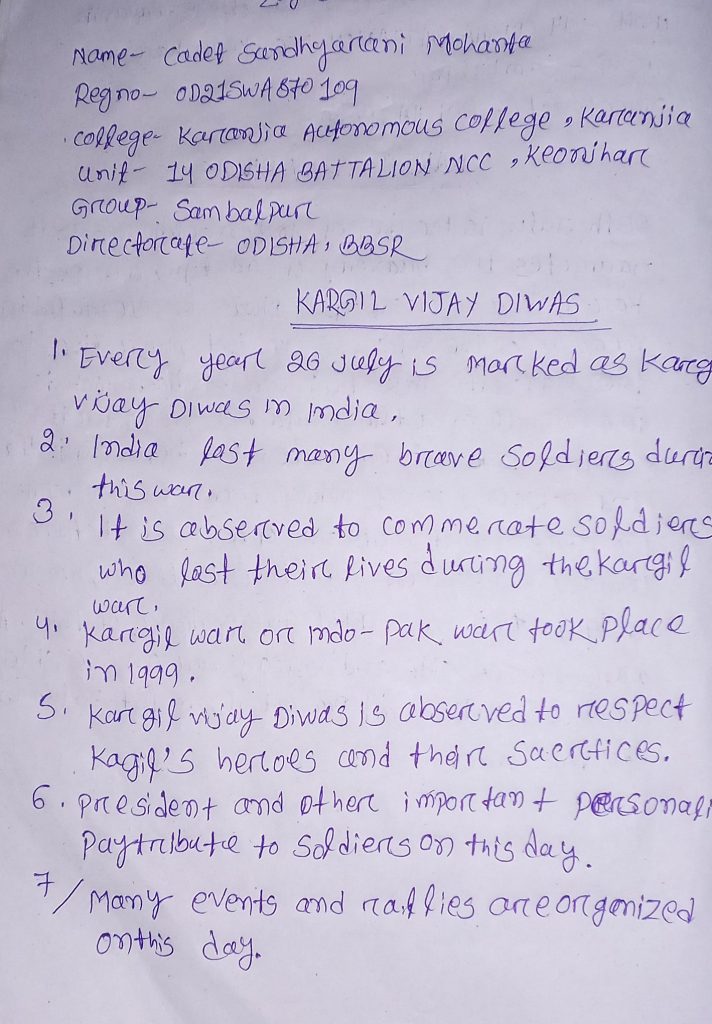 Name- Cadet Sandhyarani Mohanta
Regno- OD21SWA870109
college- Karanjia Autonomous college, Karanjia
unit- 14 ODISHA BATTALION NCC, Keonjhar
Group- Sambalpur
Directorate- ODISHA, BBSR
KARGIL VIJAY DIWAS
1. Every year 26 July is marked as Karg
vijay DIWAS in india.
2. India lost many brave soldiers durin
this war.
3. It is observed to commenrate soldiers
who lost their lives during the kargil
war.
4. Kargil war or indo-pak war took place
in 1999.
5. Kargil vijay Diwas is observed to respect
Kagil's heroes and their sacrifices.
6. president and other important personali
Pay tribute to soldiers on this day.
7/ Many events and rallies are organized
on this day.